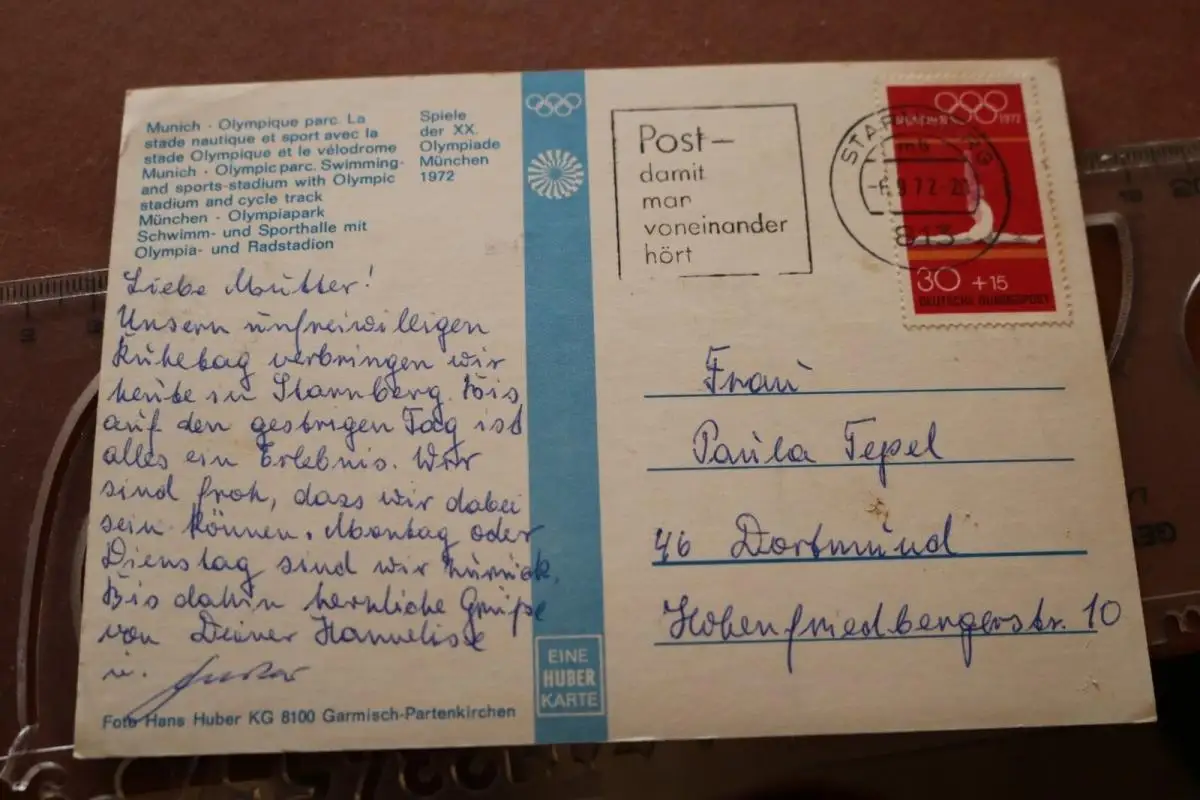 Munich · Olympique parc. La
stade nautique et sport avec la
stade Olympique et le vélodrome
Munich · Olympic parc. Swimming-
and sports-stadium with Olympic
stadium and cycle track
München · Olympiapark
Schwimm- und Sporthalle mit
Olympia- und Radstadion
Spiele
der XX.
Olympiade
München
1972
Liebe Mutter!
Unsern unfreiwilligen
Ruhetag verbringen wir
heute in Starnberg. Bis
auf den gestrigen Tag ist
alles ein Erlebnis. Wir
sind froh, dass wir dabei
sein können. Montag oder
Dienstag sind wir zurück.
Bis dahin herzliche Grüße
von Deiner Hannelise
u.
Foto Hans Huber KG 8100 Garmisch-Partenkirchen
EINE
HUBER
KARTE
Post–
damit
man
voneinander
hört
9.72
813
1972
30 +15
DEUTSCHE BUNDESPOST
Frau
Paula Tepel
46 Dortmund
Hohenfriedbergerstr. 10